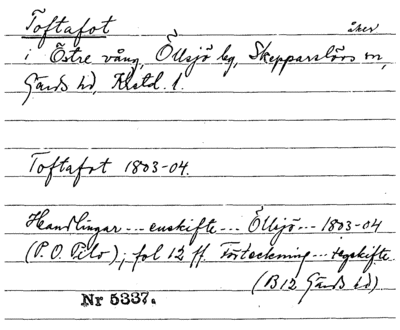 Toftafot åker
i Östre vång, Öllsjö by, Skepparslövs sn,
Gärds hd, Krstd. l.
Toftafot 1803-04.
Handlingar --- enskifte --- Öllsjö --- 1803-04
(P.O. Pilo); fol 12 ff. Förteckning --- egskifte
(B12 Gärds hd)
Nr 5337.